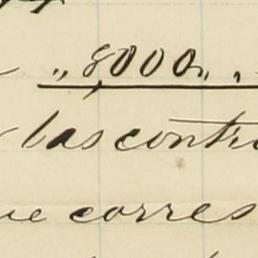 „ 8,000„ „
las contri
ue corres